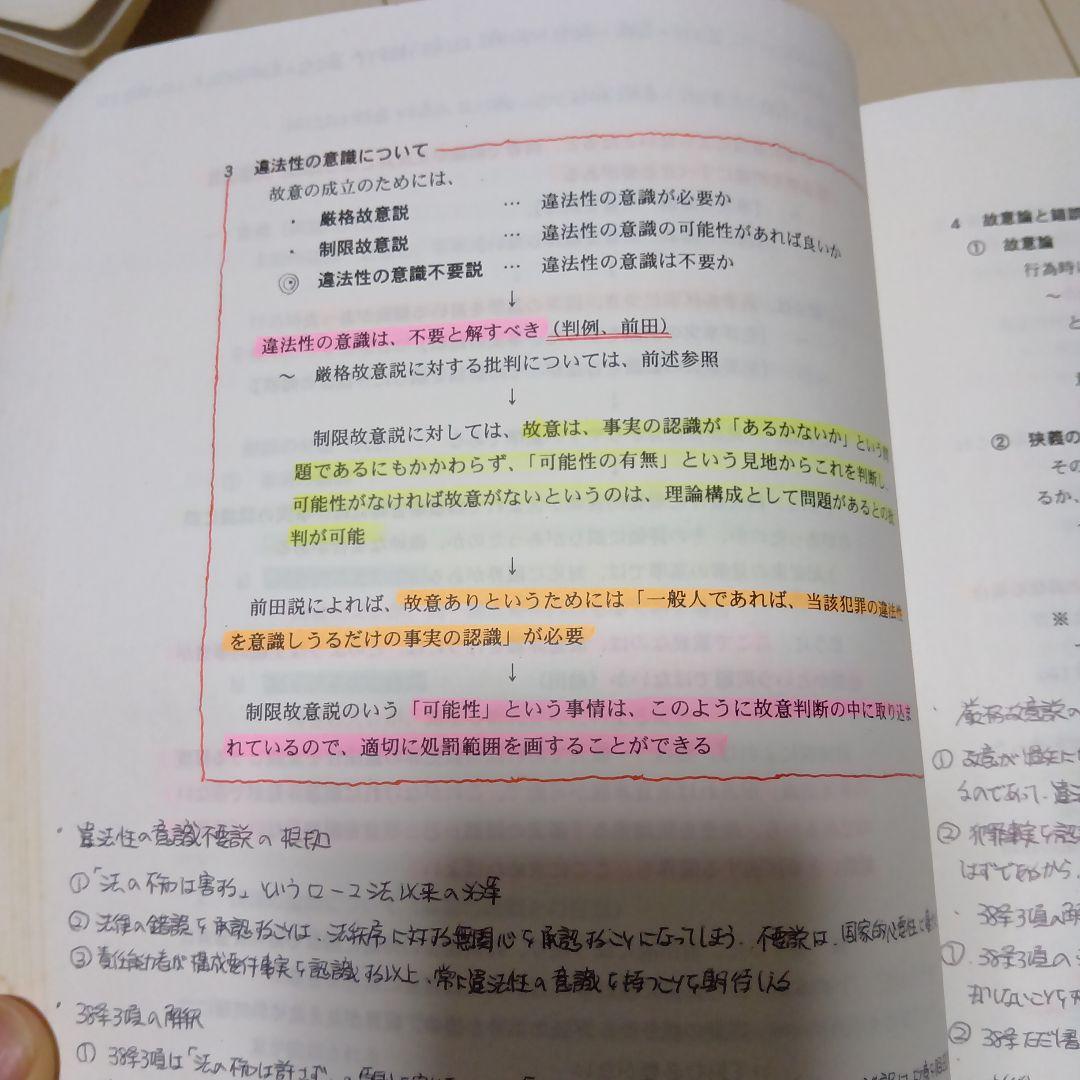 3 違法性の意識について
故意の成立のためには、
・ 厳格故意説 … 違法性の意識が必要か
・ 制限故意説 … 違法性の意識の可能性があれば良いか
◎ 違法性の意識不要説 … 違法性の意識は不要か
↓
違法性の意識は、不要と解すべき（判例、前田）
～ 厳格故意説に対する批判については、前述参照
↓
制限故意説に対しては、故意は、事実の認識が「あるかないか」という
題であるにもかかわらず、「可能性の有無」という見地からこれを判断し、
可能性がなければ故意がないというのは、理論構成として問題があるとの批
判が可能
↓
前田説によれば、故意ありというためには「一般人であれば、当該犯罪の違法性
を意識しうるだけの事実の認識」が必要
↓
制限故意説のいう「可能性」という事情は、このように故意判断の中に取り込ま
れているので、適切に処罰範囲を画することができる
・違法性の意識不要説の根拠
①「法の不知は害する」というローマ法以来の法諺
②法律の錯誤を承認することは、法秩序に対する無関心を承認することになってしまう。不要説は、国家的必要性に
③責任能力者が構成要件事実を認識する以上、常に違法性の意識を持つことを期待しうる
・38条3項の解釈
① 38条3項は「法の不知は許さず」の
4 故意論と錯誤
① 故意論
行為時に
～
と
② 狭義の
その
るか、
※
・厳格故意説の
① 故意が
なのであって、違法
② 犯罪事実を認
はずであるから、
・38条3項の解
① 38条3項の
② 38条ただし書